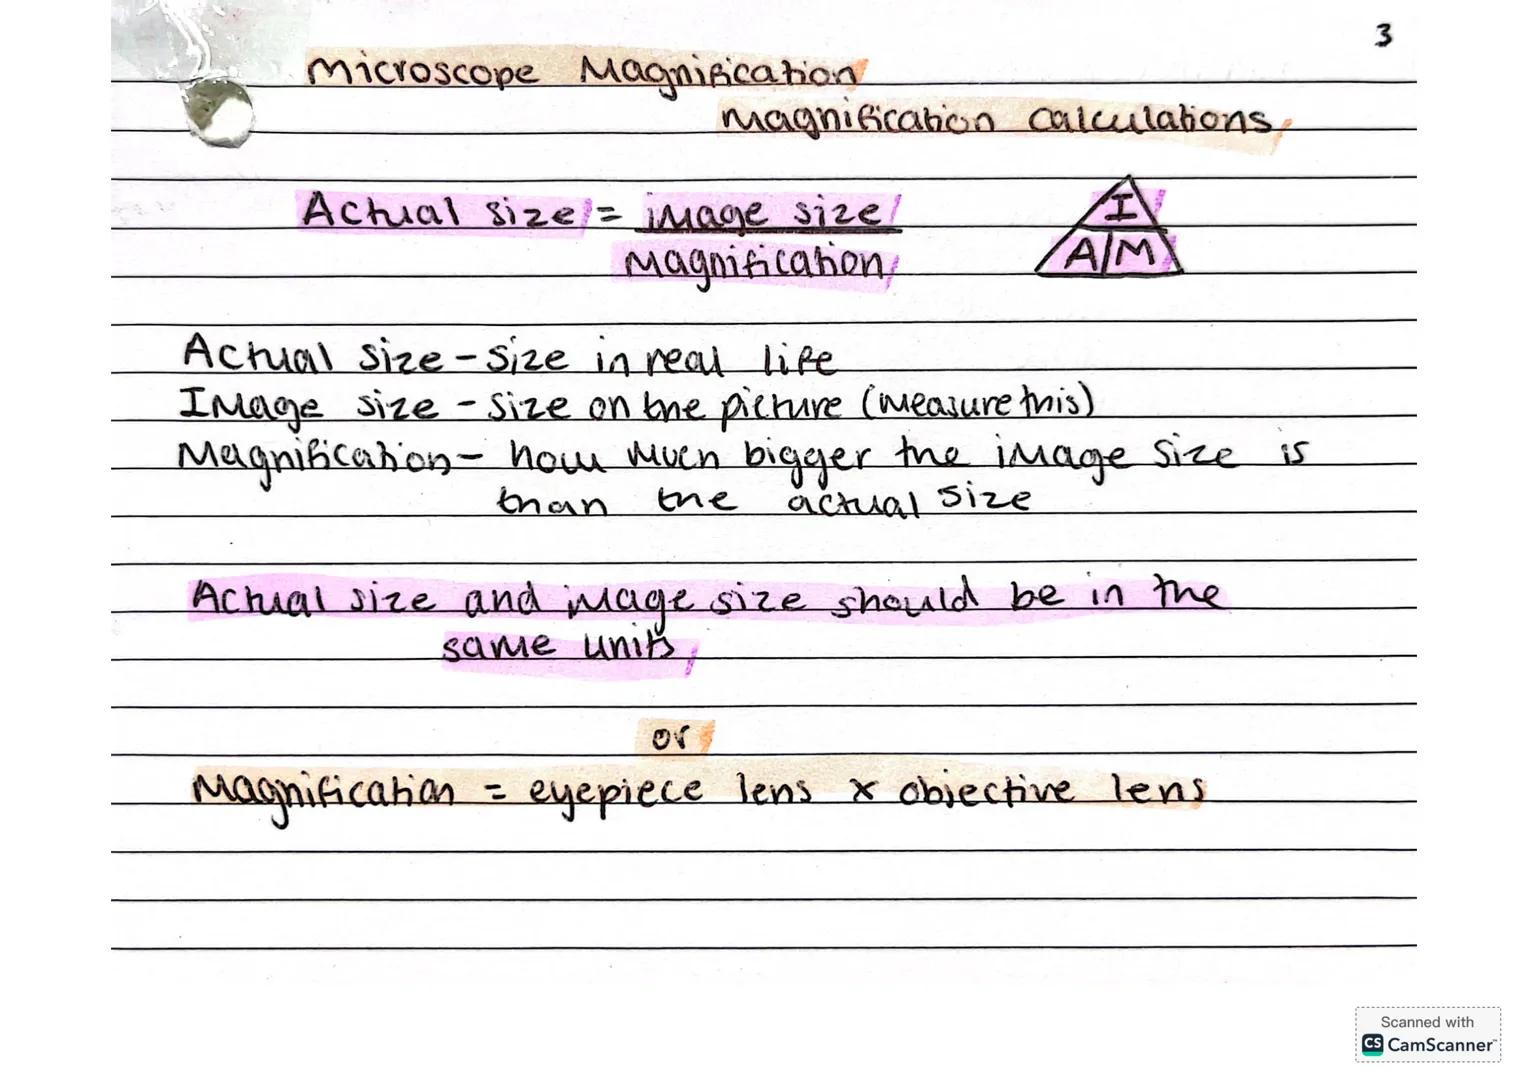 3
Microscope Magnification
Magnification Calculations
Actual size = image size
Magnification
I
A/M
Actual size - size in real life
Image size - size on the picture (measure this)
Magnification - how much bigger the image size is
than the actual size
Actual size and image size should be in the
same units
or
Magnification = eyepiece lens x objective lens
Scanned with
CS CamScanner